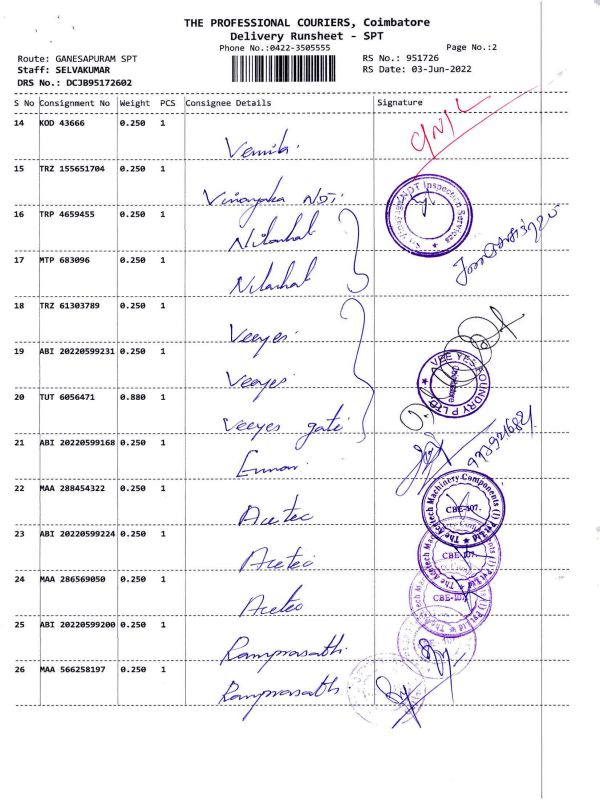 THE PROFESSIONAL COURIERS, Coimbatore
Delivery Runsheet - SPT
Phone No.:0422-3505555
Page No.:2
Route: GANESAPURAM SPT
RS No.: 951726
Staff: SELVAKUMAR
RS Date: 03-Jun-2022
DRS No.: DCJB95172602
S No Consignment No Weight PCS Consignee Details Signature
14 KOD 43666 0.250 1
15 TRZ 155651704 0.250 1 Vinayaka NDT
16 TRP 4659455 0.250 1
17 MTP 683096 0.250 1
18 TRZ 61303789 0.250 1 Veeyes
19 ABI 20220599231 0.250 1 Veeyes
20 TUT 6056471 0.880 1 Veeyes gate
21 ABI 20220599168 0.250 1
22 MAA 288454322 0.250 1 Acetec
23 ABI 20220599224 0.250 1 Acetec
24 MAA 286569050 0.250 1 Acetec
25 ABI 20220599200 0.250 1 Ramprasathi
26 MAA 566258197 0.250 1 Ramprasath
NDT Inspection Services
VEE YES FOUNDRY P LTD
Coimbatore
The Acetech Machinery Components (I) Pvt Ltd
CBE-107.
CBE-107.
CBE-107.